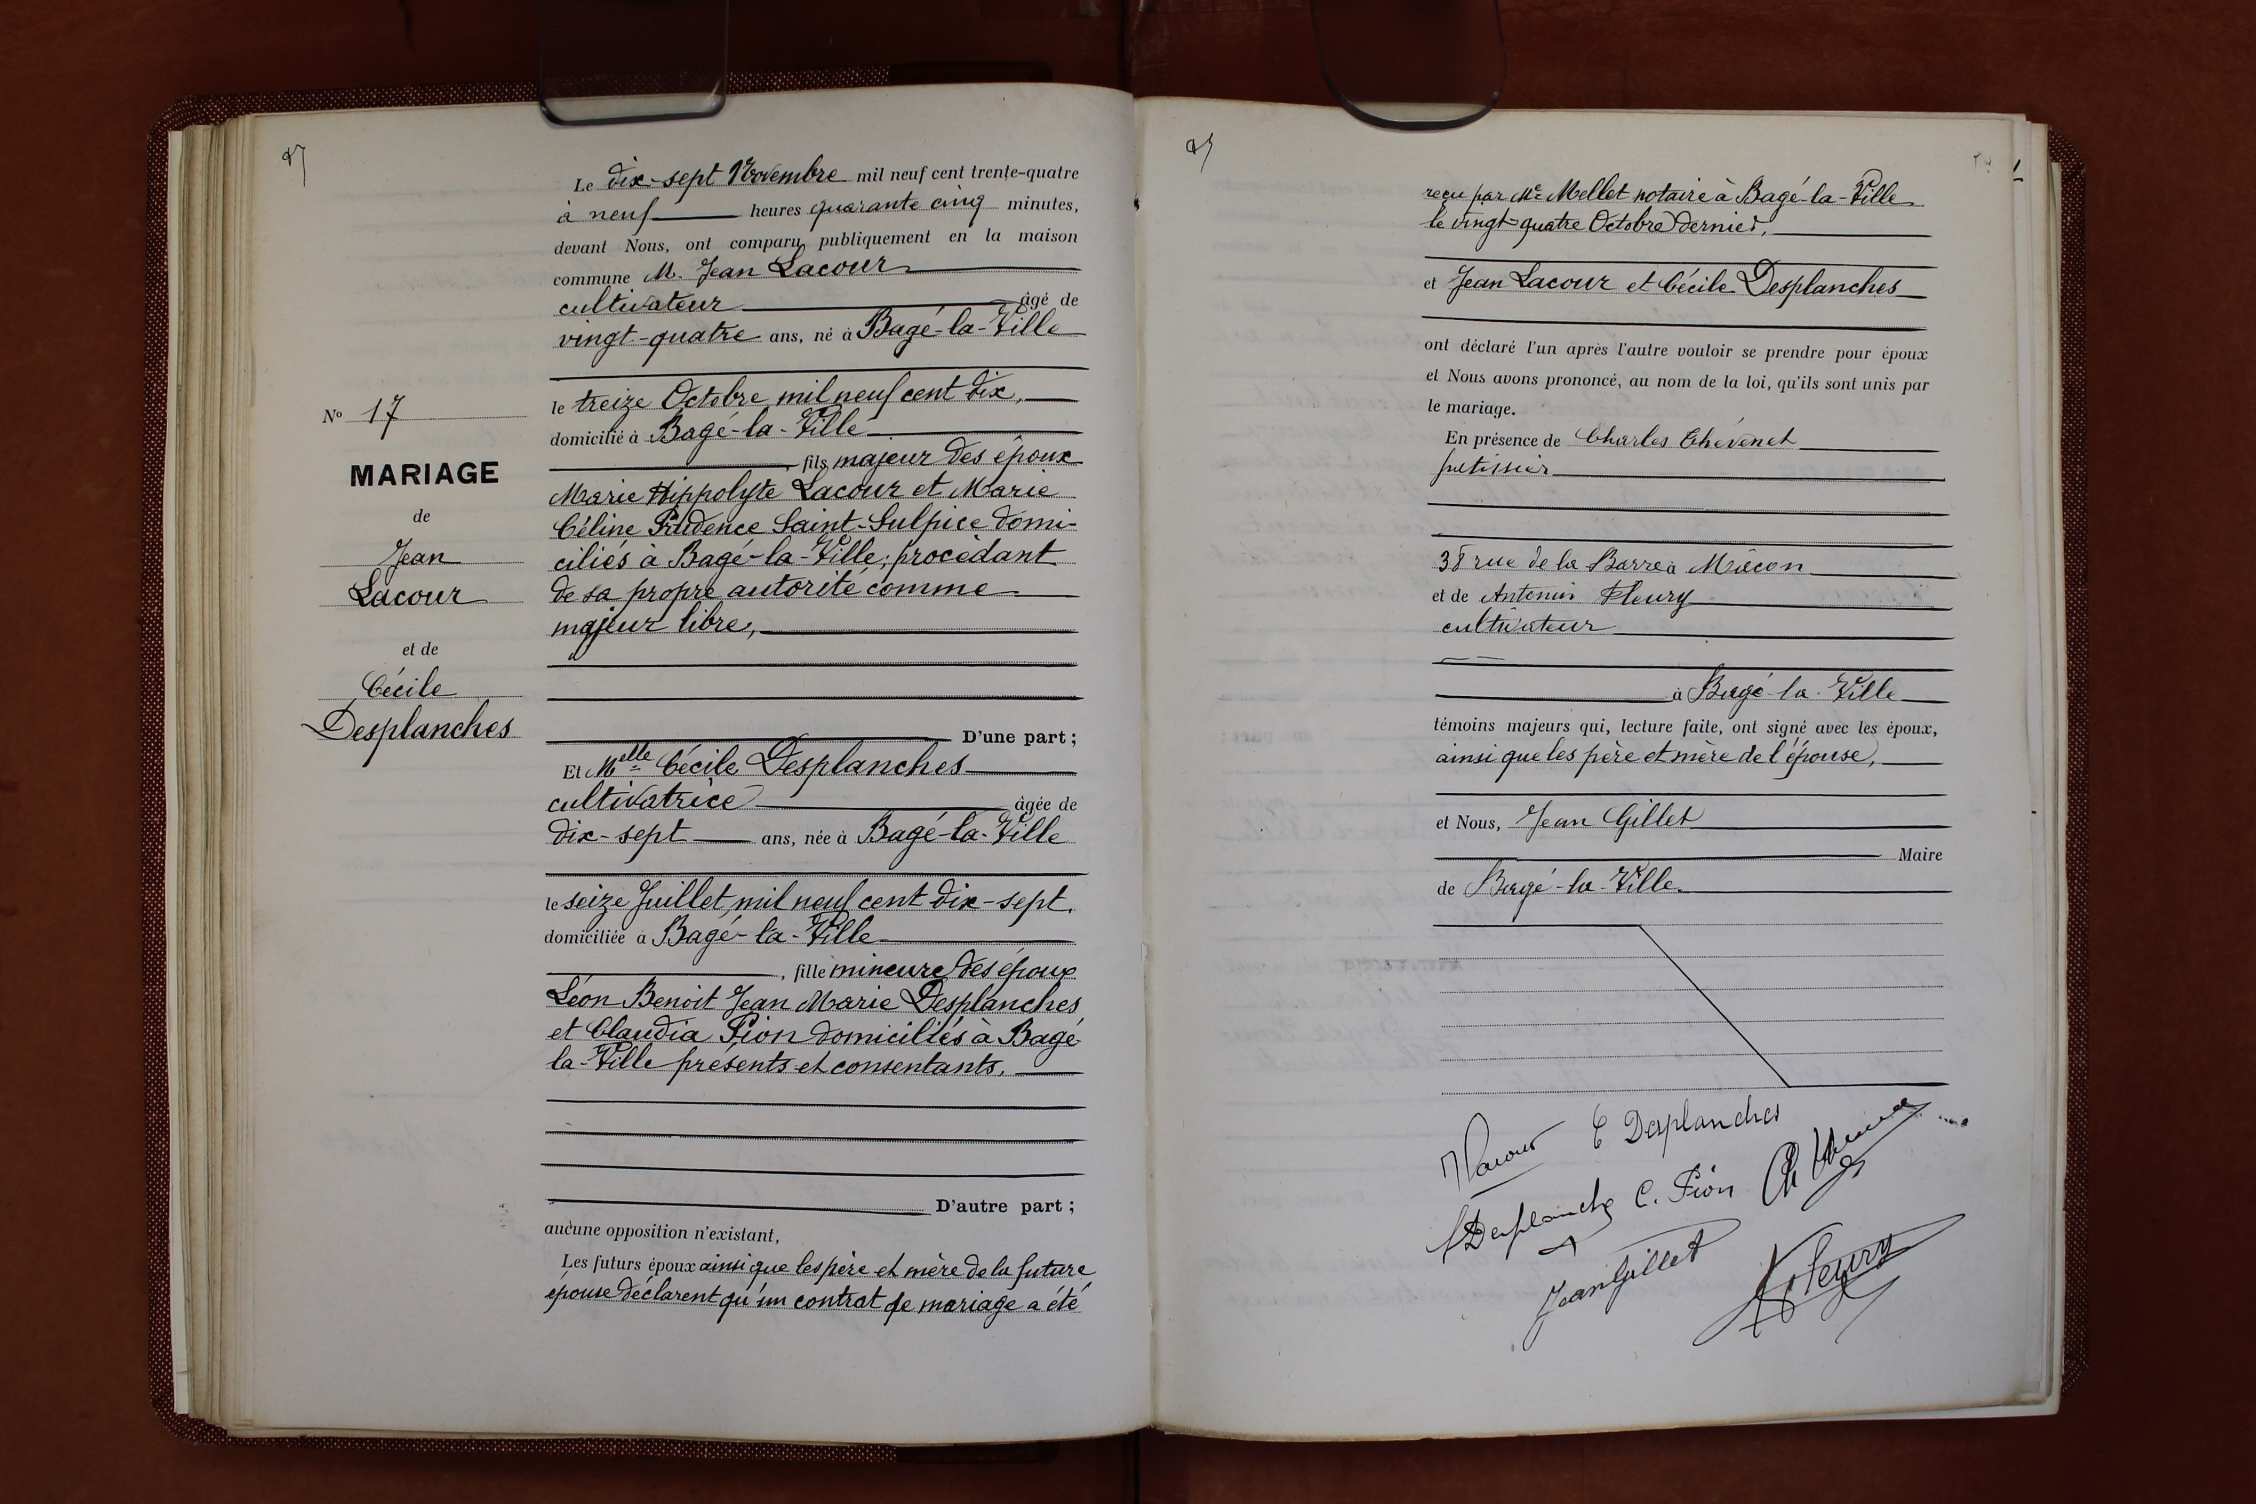 Le dix-sept Novembre mil neuf cent trente-quatre
à neuf heures quarante cinq minutes,
devant Nous, ont comparu publiquement en la maison
commune M. Jean Lacour
cultivateur âgé de
vingt-quatre ans, né à Bagé-la-Ville
le treize Octobre mil neuf cent dix,
domicilié à Bagé-la-Ville
, fils majeur des époux
Marie Hippolyte Lacour et Marie
Céline Prudence Saint-Sulpice domi-
ciliés à Bagé-la-Ville, procédant
de sa propre autorité comme
majeur libre,
D'une part ;
Et Melle Cécile Desplanches
cultivatrice âgée de
dix-sept ans, née à Bagé-la-Ville
le seize Juillet mil neuf cent dix-sept.
domiciliée à Bagé-la-Ville
, fille mineure des époux
Léon Benoit Jean Marie Desplanches
et Claudia Pion domiciliés à Bagé-
la-Ville présents et consentants.
D'autre part ;
aucune opposition n'existant,
Les futurs époux ainsi que les père et mère de la future
épouse déclarent qu'un contrat de mariage a été
No 17
MARIAGE
de
Jean
Lacour
et de
Cécile
Desplanches
reçu par Me Mellet notaire à Bagé-la-Ville
le vingt-quatre Octobre dernier,
et Jean Lacour et Cécile Desplanches
ont déclaré l'un après l'autre vouloir se prendre pour époux
et Nous avons prononcé, au nom de la loi, qu'ils sont unis par
le mariage.
En présence de Charles Thévenet
patissier
38 rue de la Barre à Mâcon
et de Antonin Fleury
cultivateur
à Bagé-la-Ville
témoins majeurs qui, lecture faite, ont signé avec les époux,
ainsi que les père et mère de l'épouse,
et Nous, Jean Gillet
Maire
de Bagé-la-Ville
J Lacour C Desplanches
Desplanche C. Pion
Jean Gillet A Fleury